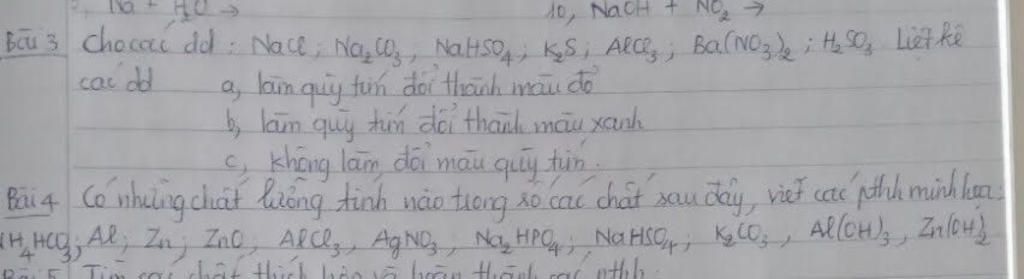 Na + H₂O → 10, NaOH + NO₂ →
Bài 3 Cho các dd : NaCl ; Na₂CO₃ ; NaHSO₄ ; K₂S ; AlCl₃ ; Ba(NO₃)₂ ; H₂SO₃ Liệt kê
các dd a, làm quỳ tím đổi thành màu đỏ
b, làm quỳ tím đổi thành màu xanh
c, không làm đổi màu quỳ tím.
Bài 4 Có những chất lưỡng tính nào trong số các chất sau đây, viết các pthh minh họa:
NH₄HCO₃; Al; Zn; ZnO; AlCl₃, AgNO₃, Na₂HPO₄; NaHSO₄; K₂CO₃, Al(OH)₃, Zn(OH)₂
Bài 5 Tìm các chất thích hợp và hoàn thành các pthh: